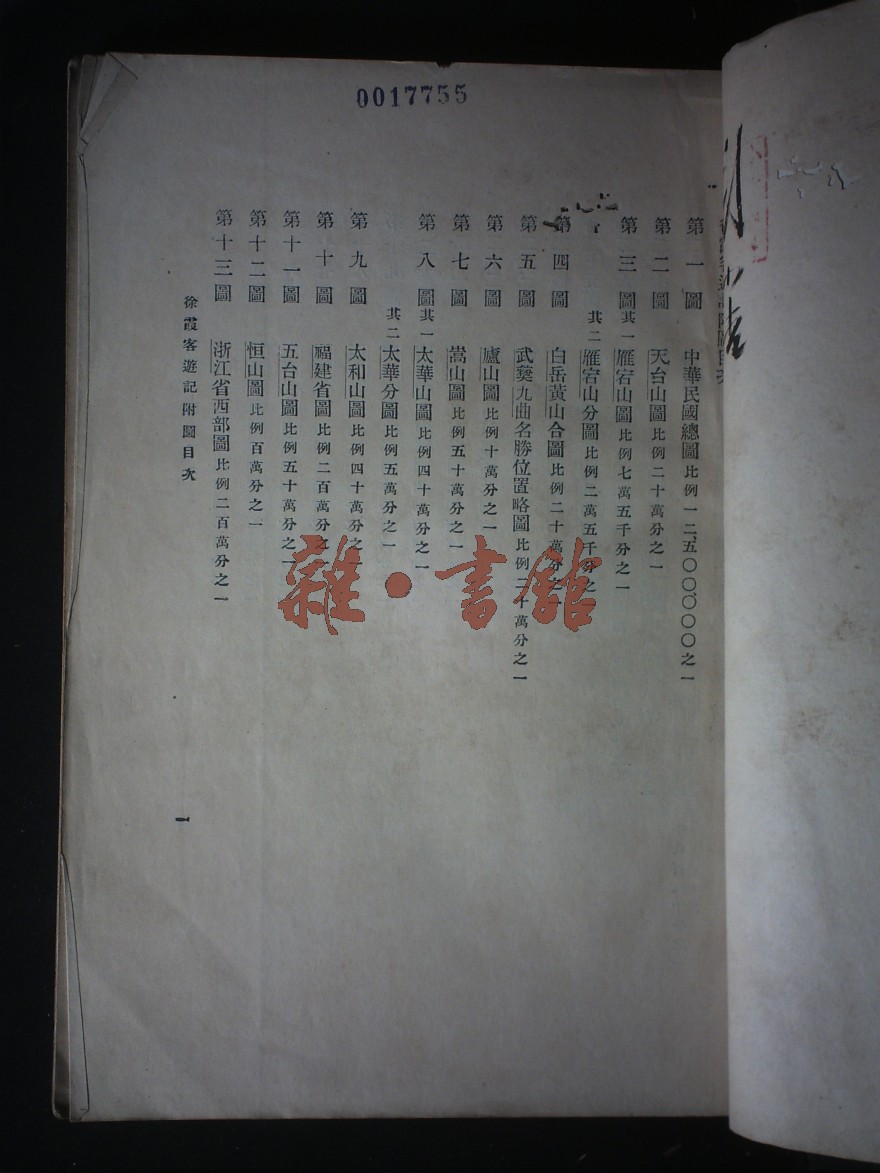 0017755
第一圖 中華民國總圖比例一二、五〇〇、〇〇〇之一
第二圖 天台山圖比例二十萬分之一
第三圖其一雁宕山圖比例七萬五千分之一
其二雁宕山分圖比例二萬五千分之一
第四圖 白岳黃山合圖比例二十萬分之一
第五圖 武彝九曲名勝位置略圖比例二十萬分之一
第六圖 廬山圖比例十萬分之一
第七圖 嵩山圖比例五十萬分之一
第八圖其一太華山圖比例四十萬分之一
其二太華分圖比例五萬分之一
第九圖 太和山圖比例四十萬分之一
第十圖 福建省圖比例二百萬分之一
第十一圖 五台山圖比例五十萬分之一
第十二圖 恒山圖比例百萬分之一
第十三圖 浙江省西部圖比例二百萬分之一
徐霞客遊記附圖目次
一
雜·書館